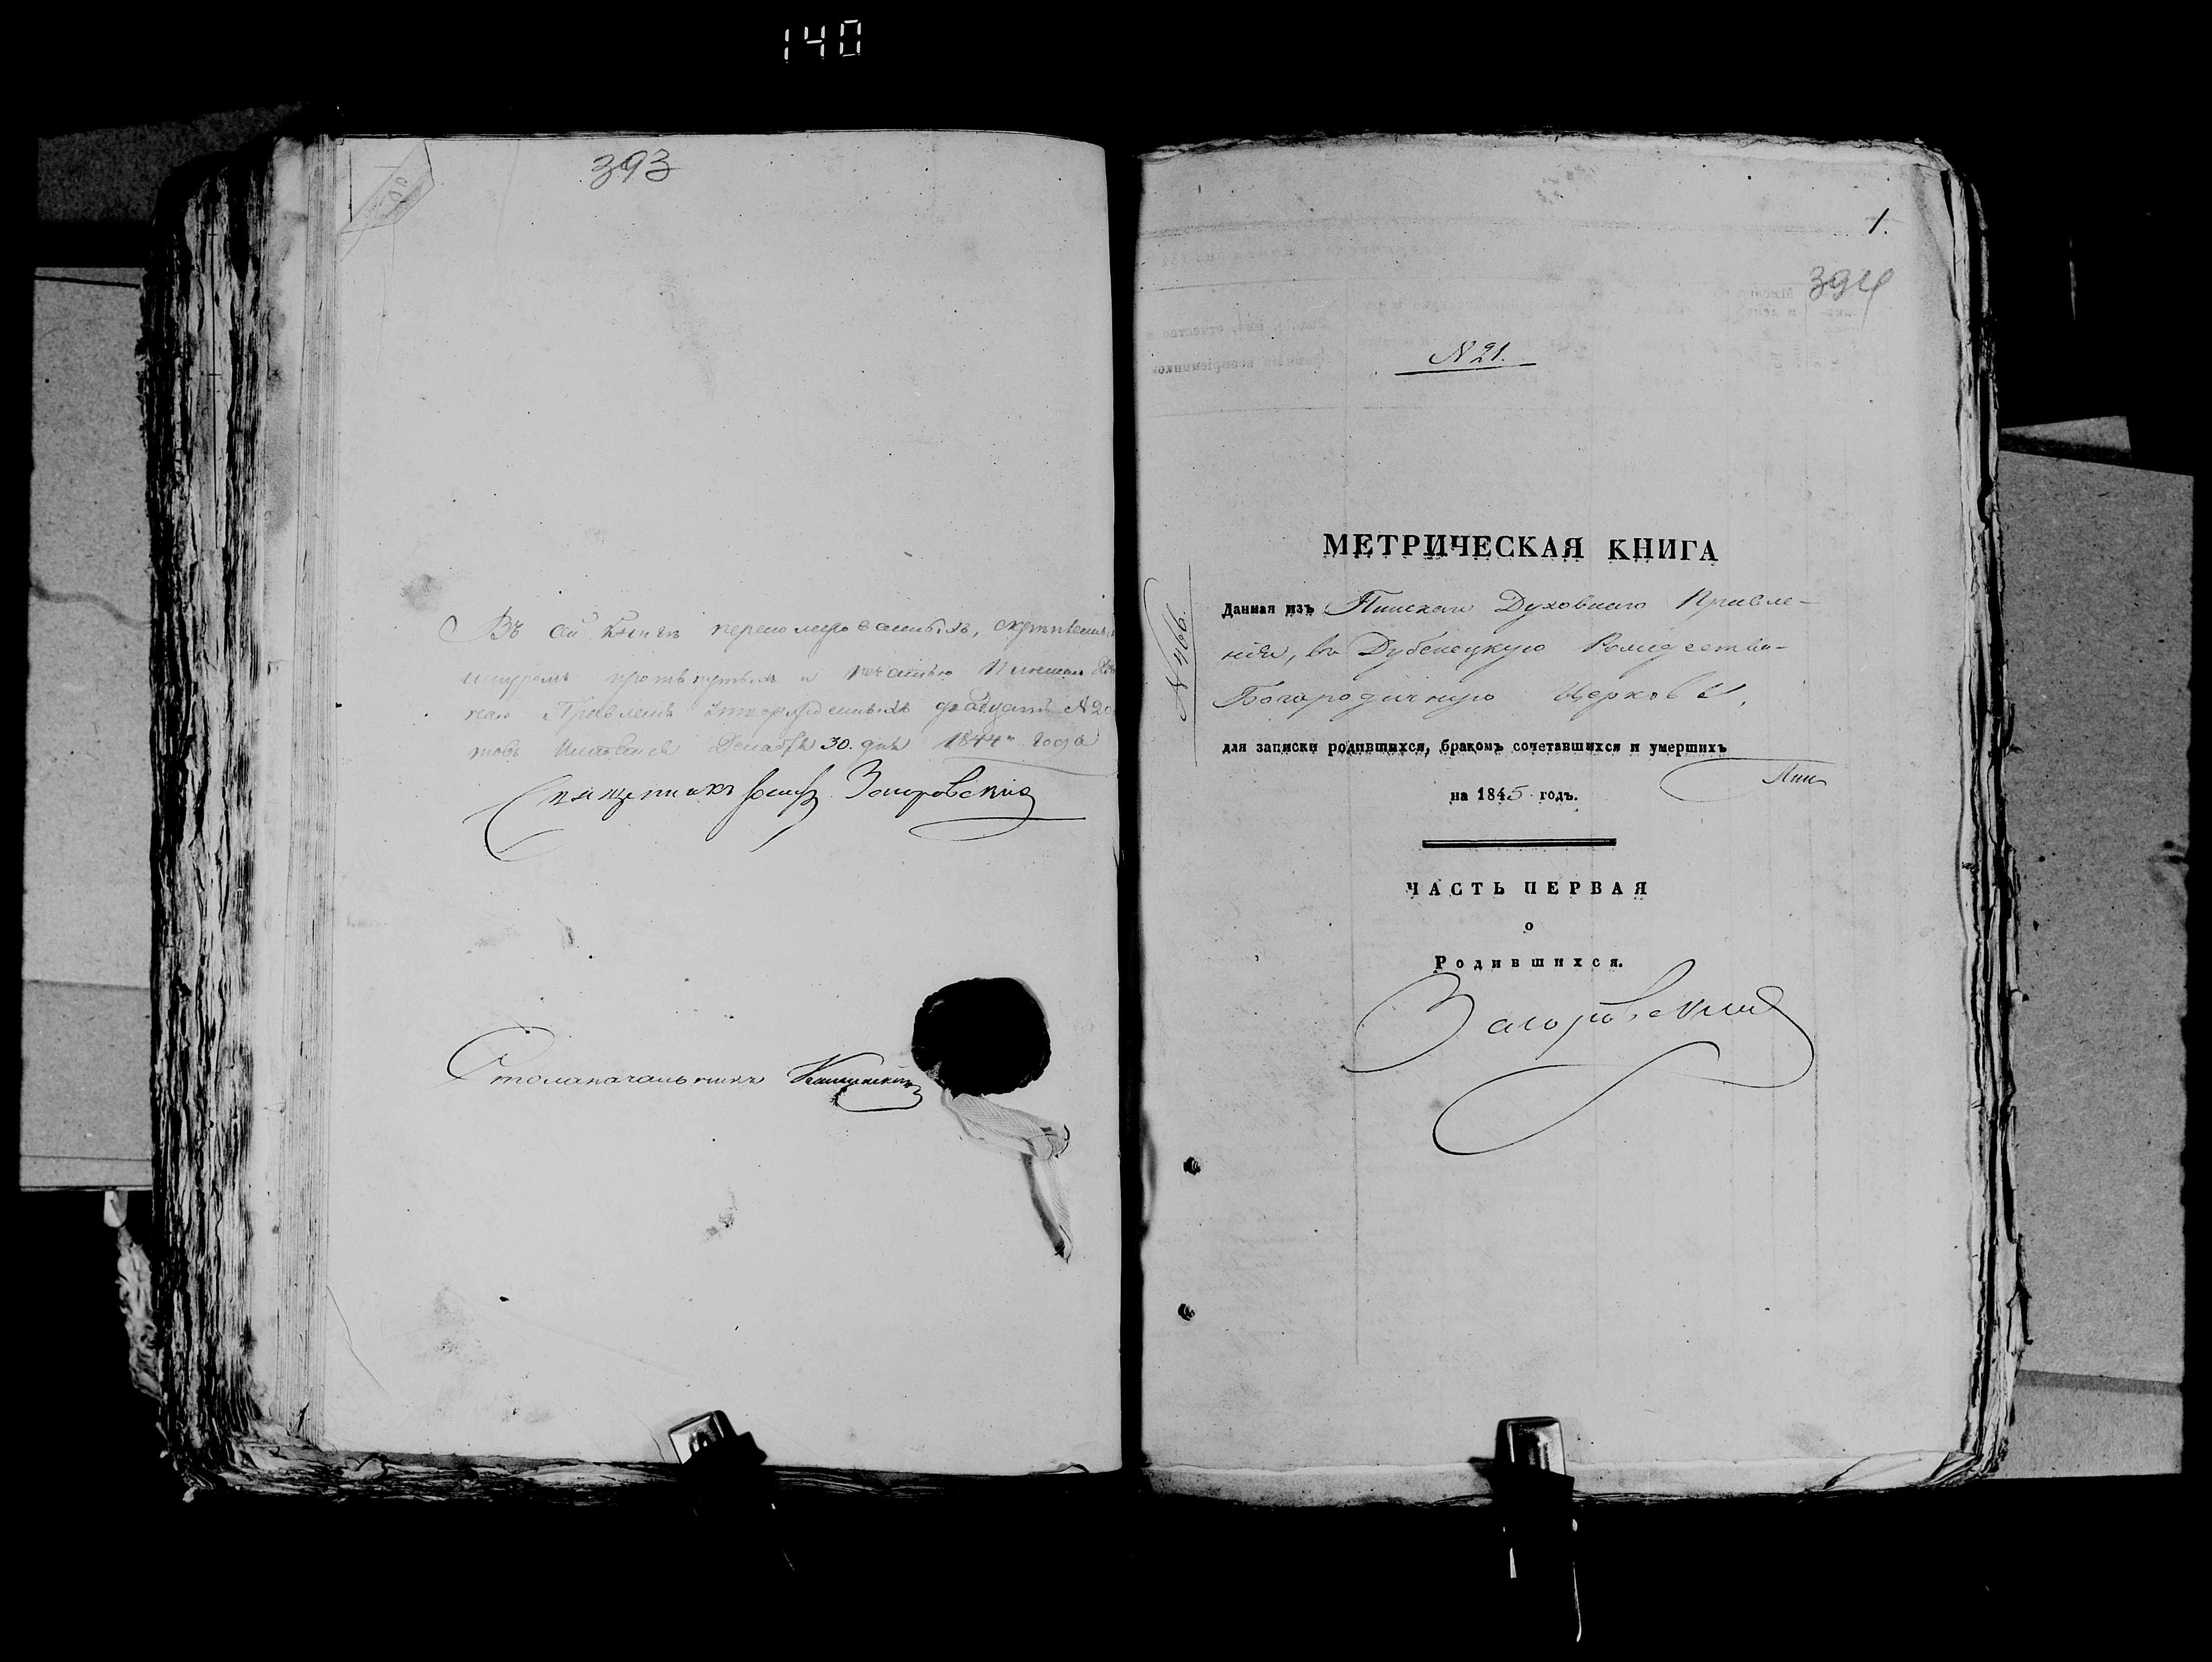 140
393
Въ сей Книгѣ перенумерованныхъ, скрѣпленныхъ
шнуромъ протянутыхъ и печатью Пинскаго
наго Правленія утвержденныхъ двадцать № 20
товъ Декабря 30. дня 1844 го года
Священникъ Загоровскій
Столоначальникъ
1.
394
N 21.
N 466.
МЕТРИЧЕСКАЯ КНИГА
Данная изъ Пинскаго Духовнаго Правле-
нія, въ Дубенецкую Рождество-
Богородичную Церковь,
для записки родившихся, бракомъ сочетавшихся и умершихъ
на 1845 годъ.
ЧАСТЬ ПЕРВАЯ
о
Родившихся.
Загоровскій